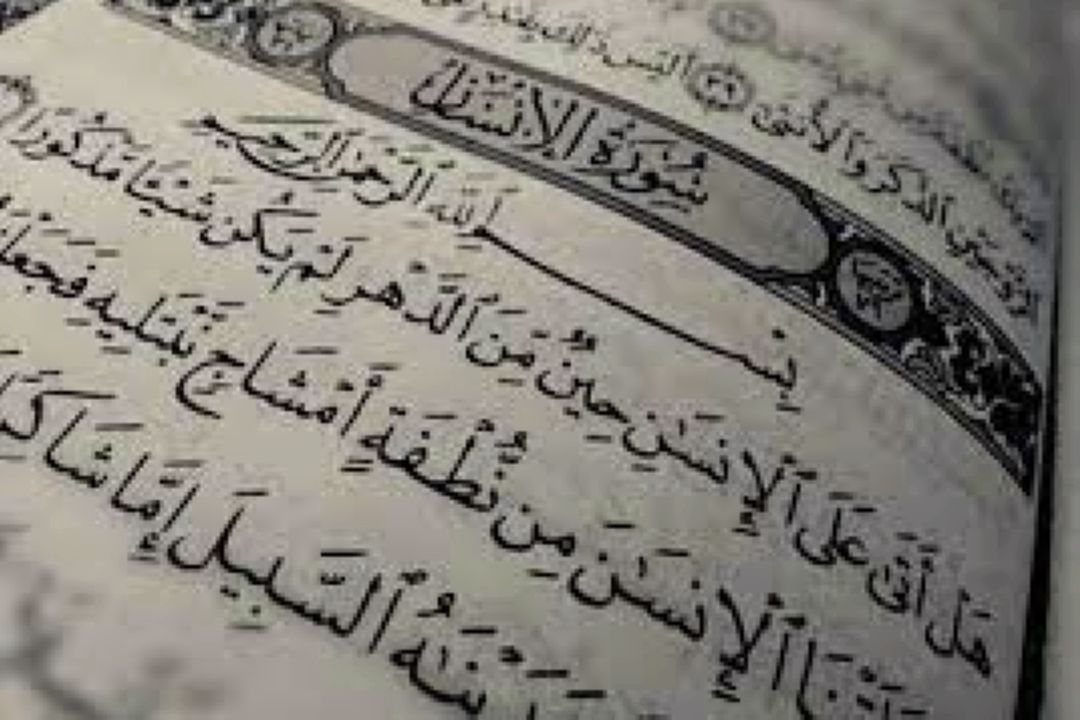 ٱلزَّوْجَيْنِ ٱلذَّكَرَ وَٱلْأُنثَىٰٓ ٣٩ أَلَيْسَ ذَٰلِكَ
سُورَةُ الإِنسَان
بِسْمِ ٱللَّهِ ٱلرَّحْمَٰنِ ٱلرَّحِيمِ
هَلْ أَتَىٰ عَلَى ٱلْإِنسَٰنِ حِينٌ مِّنَ ٱلدَّهْرِ لَمْ يَكُن شَيْـًٔا مَّذْكُورًا
ٱلْإِنسَٰنَ مِن نُّطْفَةٍ أَمْشَاجٍ نَّبْتَلِيهِ
ٱلسَّبِيلَ إِمَّا شَاكِرًا